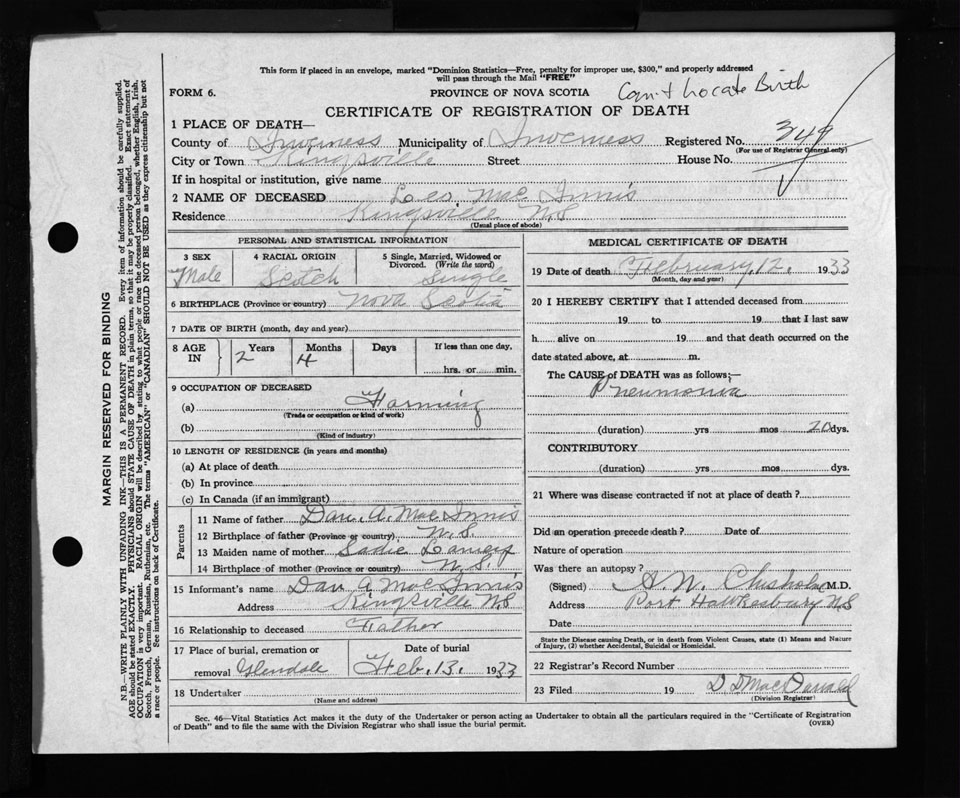 This form if placed in an envelope, marked "Dominion Statistics—Free, penalty for improper use, $300," and properly addressed
will pass through the Mail "FREE"
FORM 6.
PROVINCE OF NOVA SCOTIA
Can't Locate Birth
CERTIFICATE OF REGISTRATION OF DEATH
1 PLACE OF DEATH—
County of Inverness Municipality of Inverness Registered No. 349
(For use of Registrar General only)
City or Town Kingsville Street House No.
If in hospital or institution, give name
2 NAME OF DECEASED Leo Mac Innis
Residence Kingsville N.S
(Usual place of abode)
PERSONAL AND STATISTICAL INFORMATION
3 SEX 4 RACIAL ORIGIN 5 Single, Married, Widowed or
Divorced. (Write the word)
Male Scotch Single
6 BIRTHPLACE (Province or country) Nova Scotia
7 DATE OF BIRTH (month, day and year)
8 AGE IN Years Months Days If less than one day,
2 4 hrs. or min.
9 OCCUPATION OF DECEASED
(a) Farming
(Trade or occupation or kind of work)
(b)
(Kind of industry)
10 LENGTH OF RESIDENCE (in years and months)
(a) At place of death
(b) In province
(c) In Canada (if an immigrant)
Parents
11 Name of father Dan. A. Mac Innis
12 Birthplace of father (Province or country) N.S.
13 Maiden name of mother Sadie
14 Birthplace of mother (Province or country) N.S.
15 Informant's name Dan A Mac Innis
Address Kingsville N.S
16 Relationship to deceased Father
17 Place of burial, cremation or Date of burial
removal Glendale Feb. 13. 1933
18 Undertaker
(Name and address)
MEDICAL CERTIFICATE OF DEATH
19 Date of death February, 12, 1933
(Month, day and year)
20 I HEREBY CERTIFY that I attended deceased from
19 to 19 that I last saw
h alive on 19 and that death occurred on the
date stated above, at m.
The CAUSE of DEATH was as follows:—
Pneumonia
(duration) yrs mos 20 dys.
CONTRIBUTORY
(duration) yrs. mos. dys.
21 Where was disease contracted if not at place of death?
Did an operation precede death? Date of
Nature of operation
Was there an autopsy?
(Signed) A. N. Chisholm M.D.
Address Port Hawkesbury N.S
Date
State the Disease causing Death, or in death from Violent Causes, state (1) Means and Nature
of Injury, (2) whether Accidental, Suicidal or Homicidal.
22 Registrar's Record Number
23 Filed 19 D D MacDonald
(Division Registrar)
Sec. 46—Vital Statistics Act makes it the duty of the Undertaker or person acting as Undertaker to obtain all the particulars required in the "Certificate of Registration
of Death" and to file the same with the Division Registrar who shall issue the burial permit.
(OVER)
MARGIN RESERVED FOR BINDING
N.B.—WRITE PLAINLY WITH UNFADING INK—THIS IS A PERMANENT RECORD. Every item of information should be carefully supplied.
AGE should be stated EXACTLY. PHYSICIANS should STATE CAUSE OF DEATH in plain terms, so that it may be properly classified. Exact statement of
OCCUPATION is very important. RACIAL ORIGIN will be described by stating to what people or race the deceased person belonged, whether English, Irish,
Scotch, French, German, Russian, Ruthenian, etc. The terms "AMERICAN" or "CANADIAN" SHOULD NOT BE USED as they express citizenship but not
a race or people. See instructions on back of Certificate.